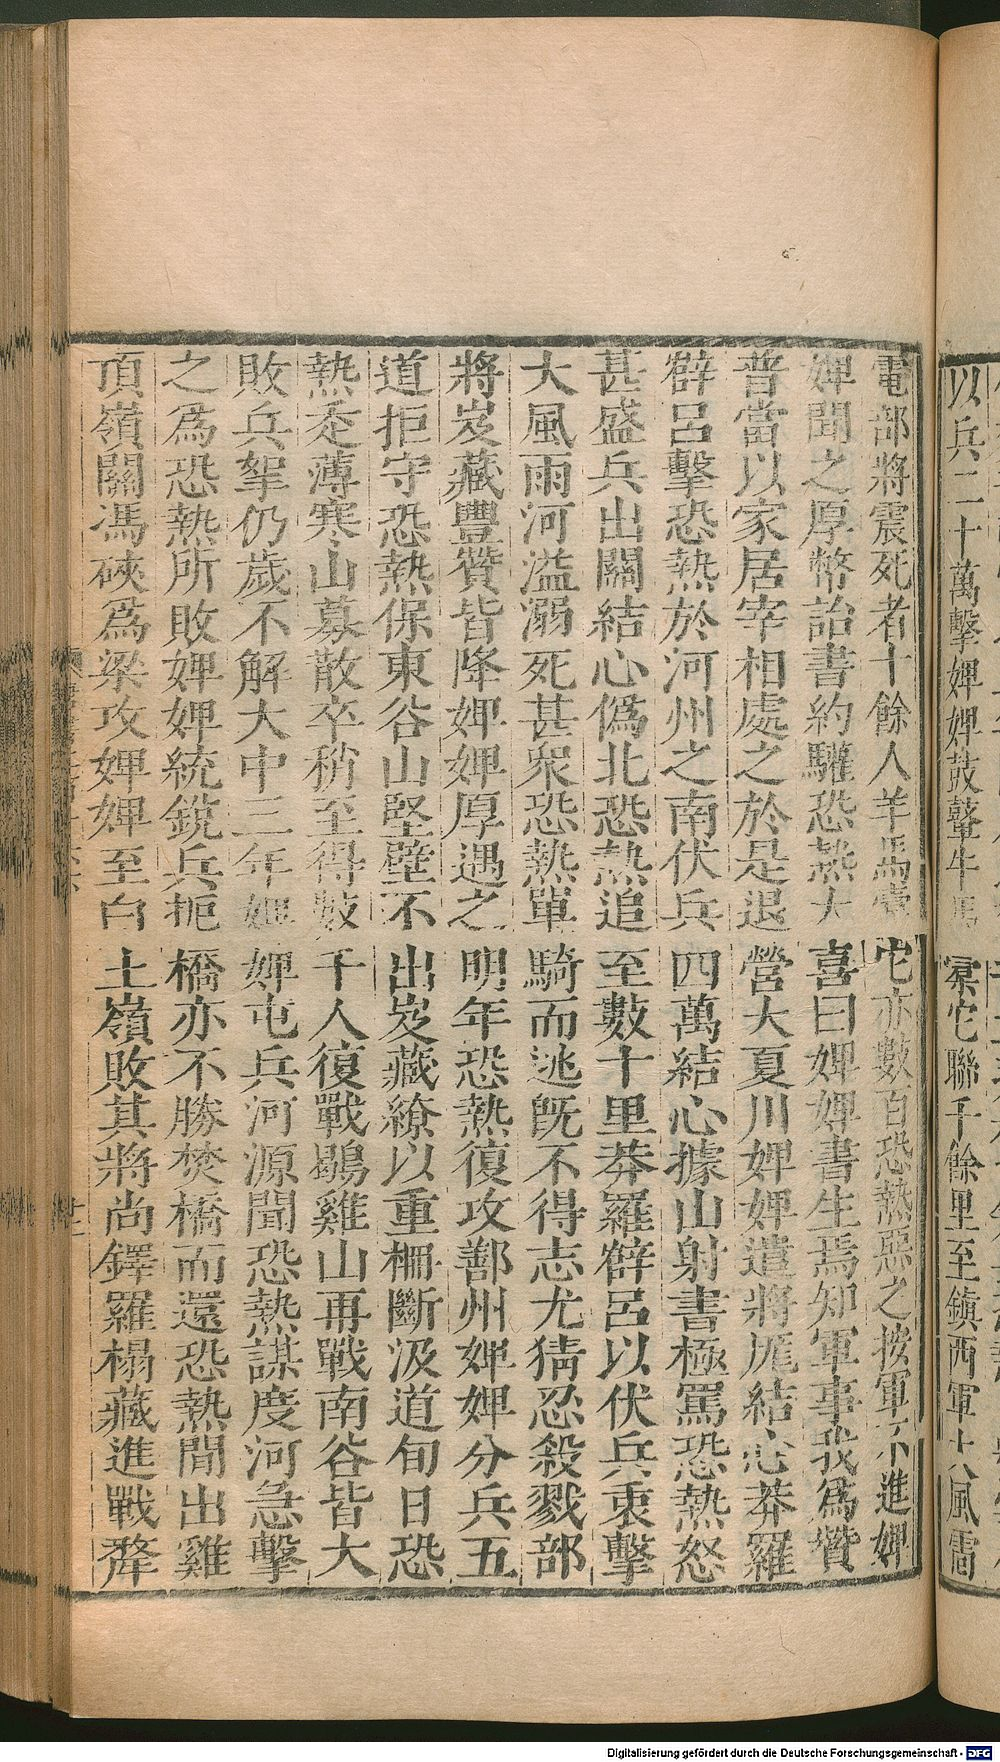 以兵二十萬擊婢婢鼓鼙牛馬橐它聯千餘里至鎮西軍大風雷
電部將震死者十餘人羊馬橐它亦數百恐熱惡之按軍不進婢
婢聞之厚幣詒書約驩恐熱大喜曰婢婢書生焉知軍事我爲贊
普當以家居宰相處之於是退營大夏川婢婢遣將厖結心莽羅
薛呂擊恐熱於河州之南伏兵四萬結心據山射書極罵恐熱怒
甚盛兵出關結心僞北恐熱追至數十里莽羅薛呂以伏兵衷擊
大風雨河溢溺死甚衆恐熱單騎而逃旣不得志尤猜忍殺戮部
將岌藏豐贊皆降婢婢厚遇之明年恐熱復攻鄯州婢婢分兵五
道拒守恐熱保東谷山堅壁不出岌藏繚以重柵斷汲道旬日恐
熱走薄寒山募散卒稍至得數千人復戰鷄雞山再戰南谷皆大
敗兵挐仍歲不解大中三年婢婢屯兵河源聞恐熱謀度河急擊
之爲恐熱所敗婢婢統銳兵扼橋亦不勝焚橋而還恐熱間出雞
頂嶺關馮硤爲梁攻婢婢至白土嶺敗其將尚鐸羅榻藏進戰犛
Digitalisierung gefördert durch die Deutsche Forschungsgemeinschaft - DFG